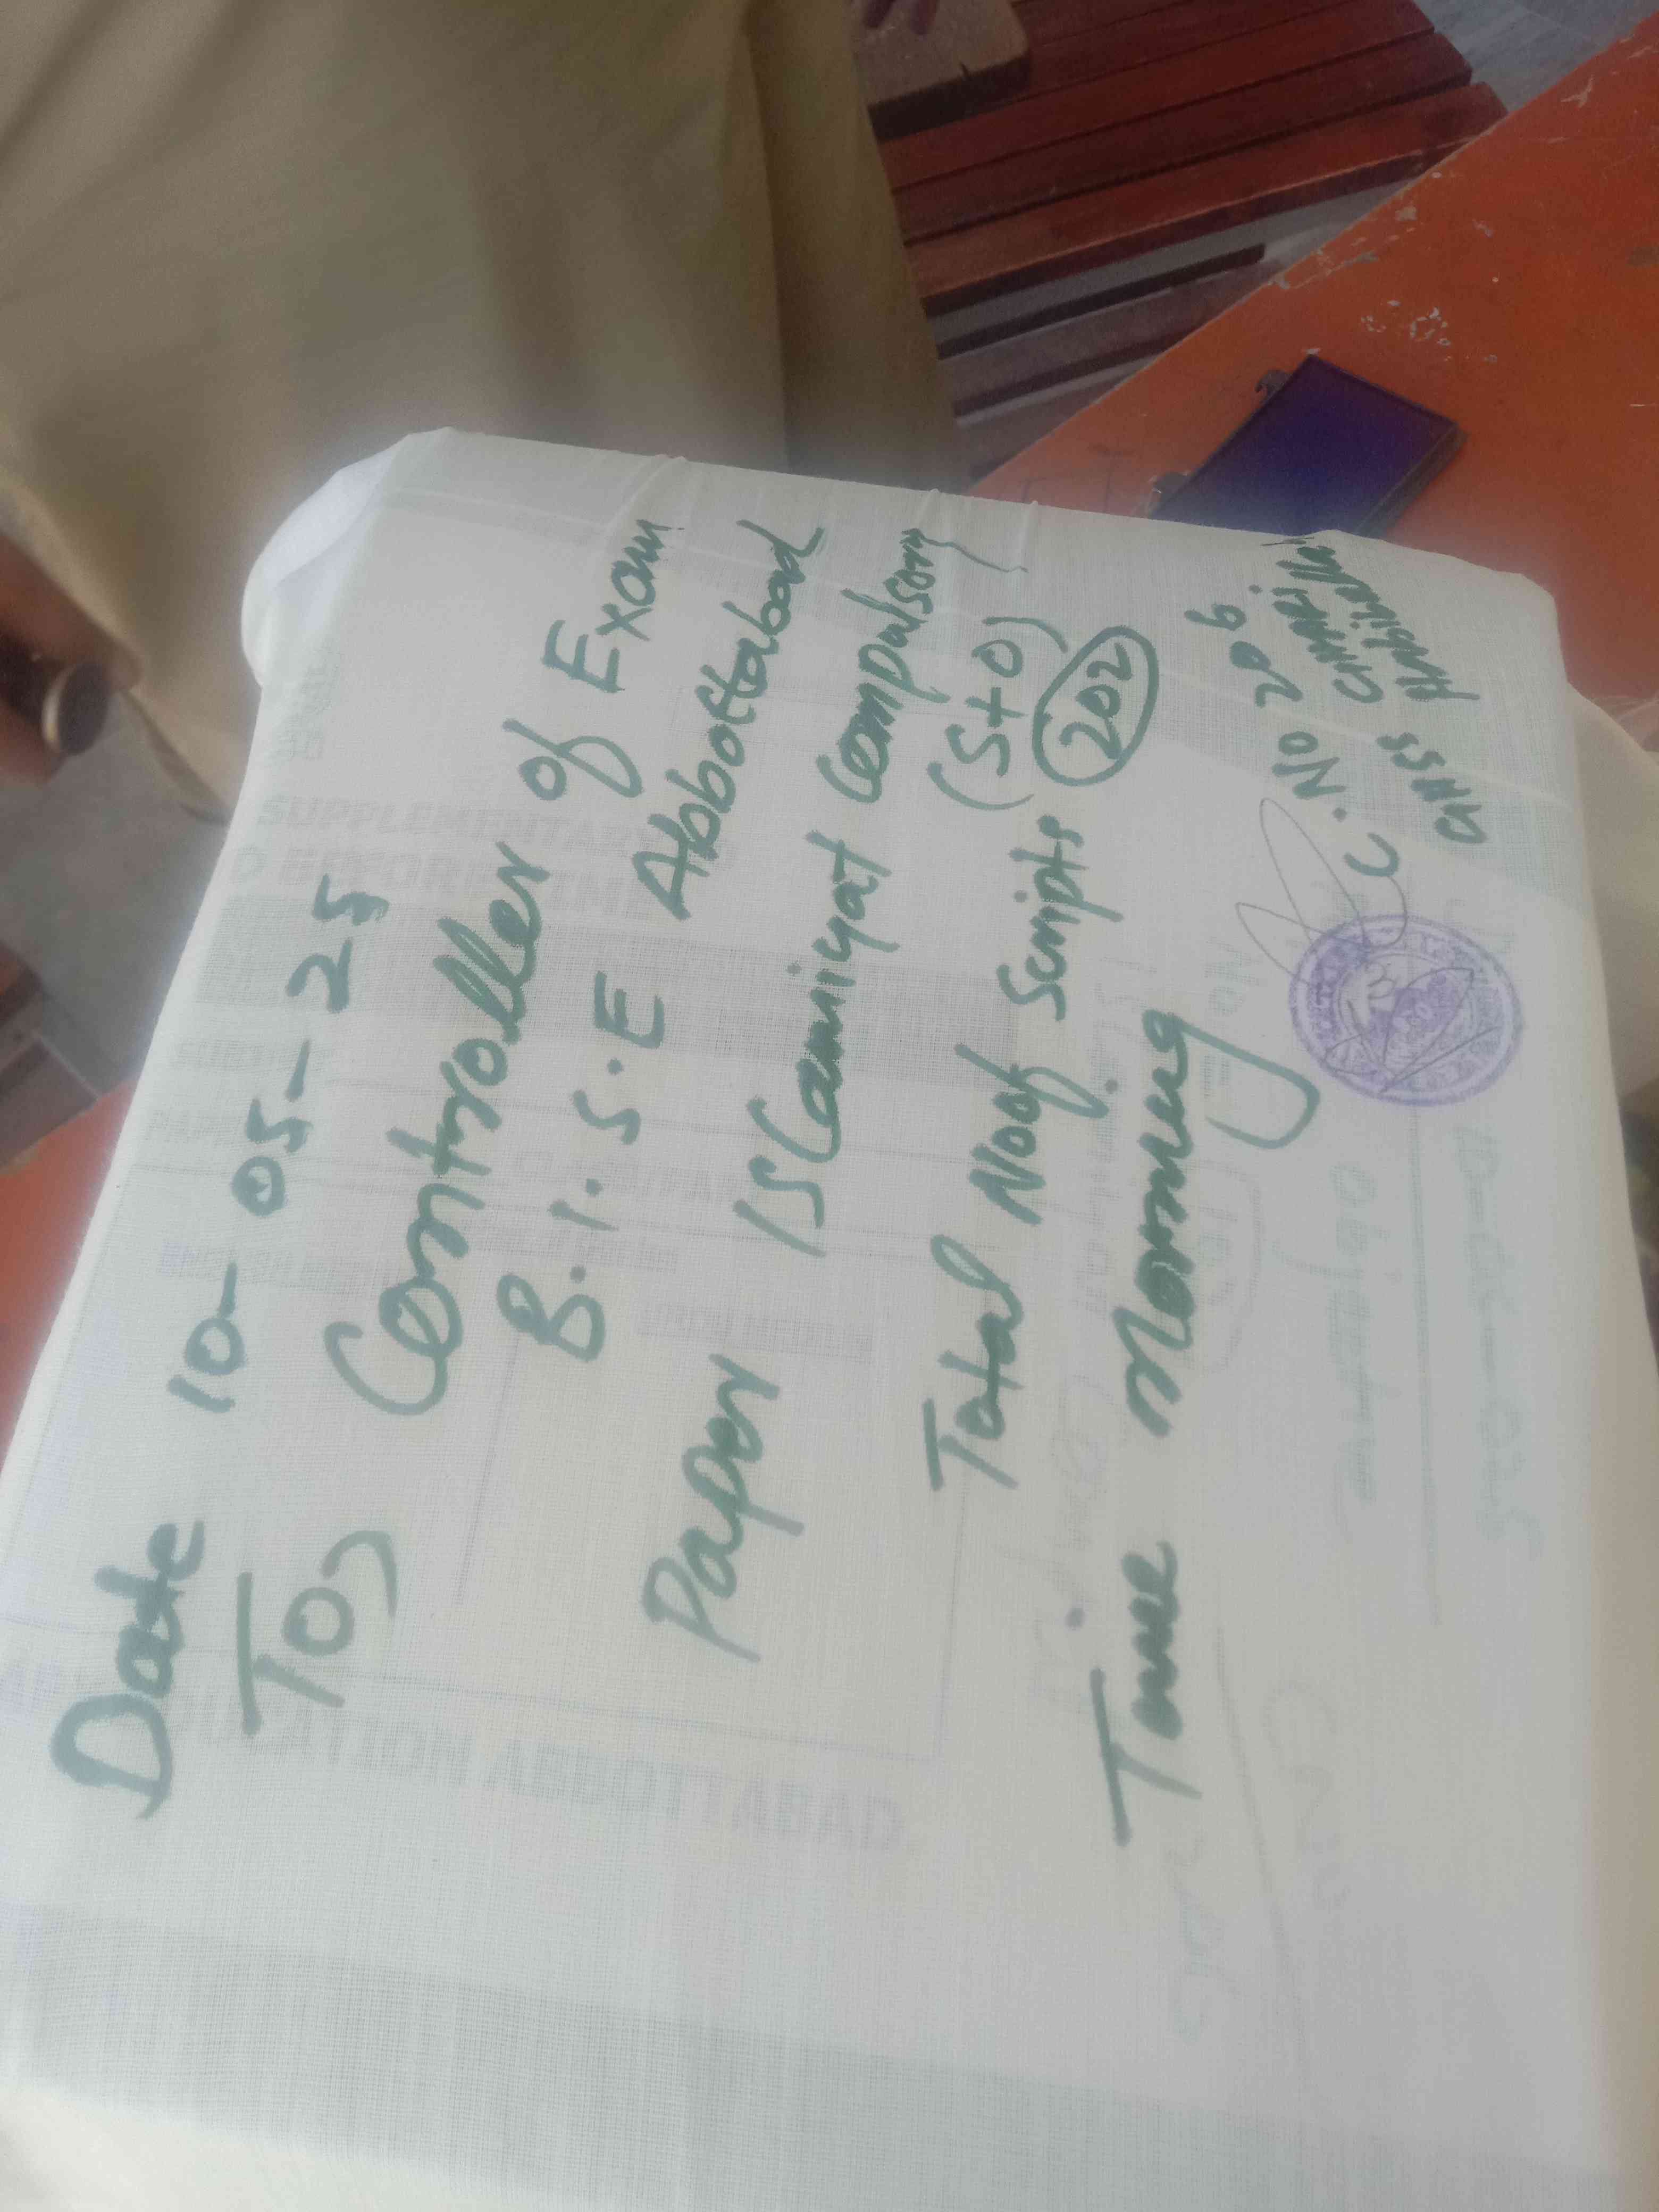 Date 10-05-25
To,
Controller of Exam
B.I.S.E Abbottabad
Paper Islamiyat Compulsory
(S+O)
Total No of Scripts 202
Time Morning
C.No 206
GHSS
SUPPLEMENTARY
ABBOTTABAD